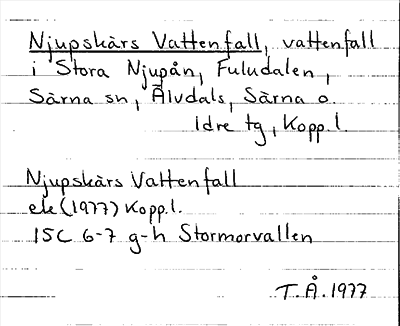 Njupskärs Vattenfall, vattenfall
i Stora Njupån, Fuludalen,
Särna sn, Älvdals, Särna o.
Idre tg, Kopp.l.
Njupskärs Vattenfall
ek (1977) Kopp.l.
15C 6-7 g-h Stormorvallen
T.Å. 1977